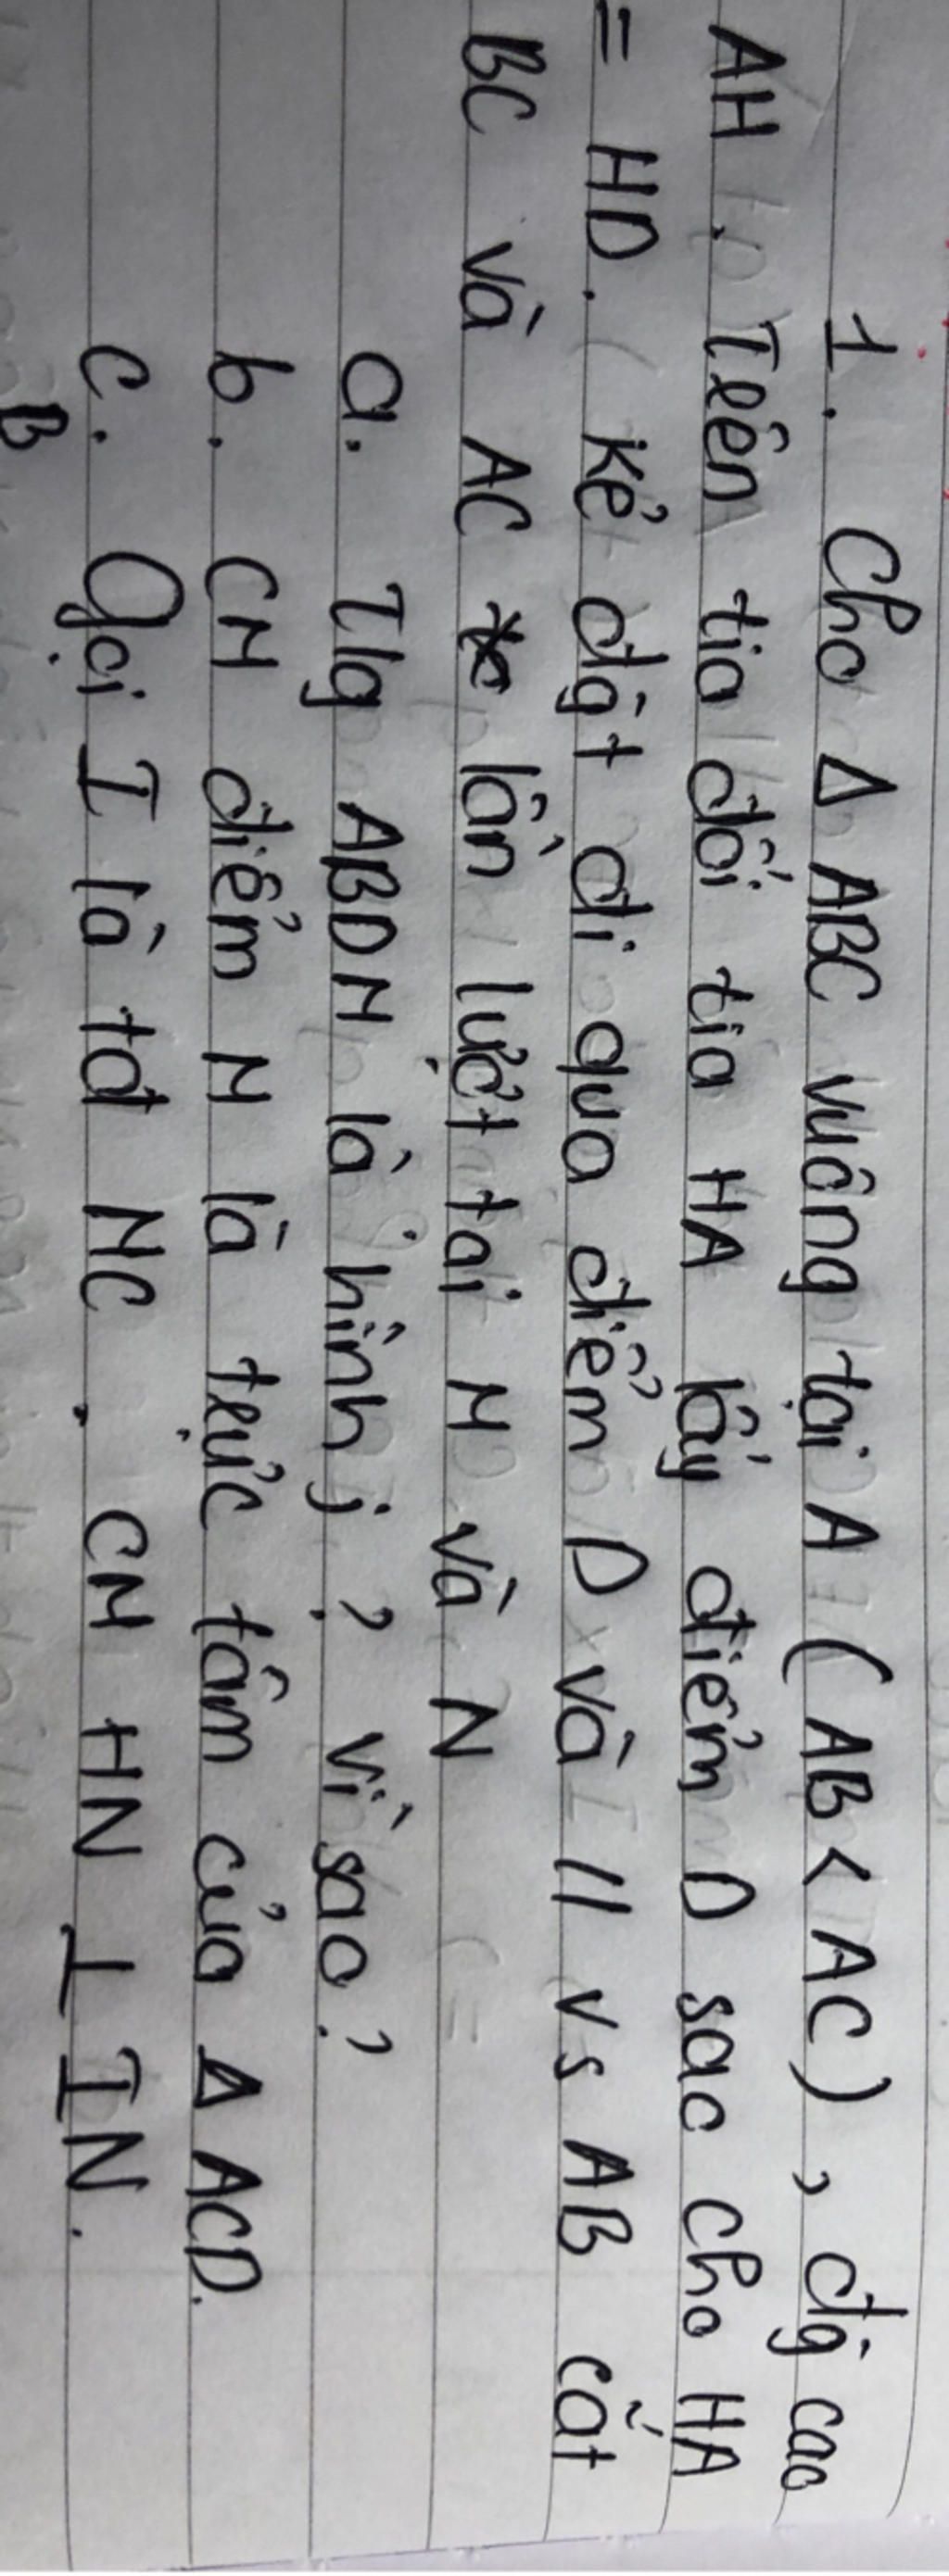 1. Cho Δ ABC vuông tại A (AB < AC), đg cao
AH. Trên tia đối tia HA lấy điểm D sao cho HA
= HD. Kẻ đgt đi qua điểm D và // vs AB cắt
BC và AC lần lượt tại M và N
a. Tlg ABDM là hình j? Vì sao?
b. CM điểm M là trực tâm của Δ ACD.
c. Gọi I là tđ MC. CM HN ⊥ IN.
B